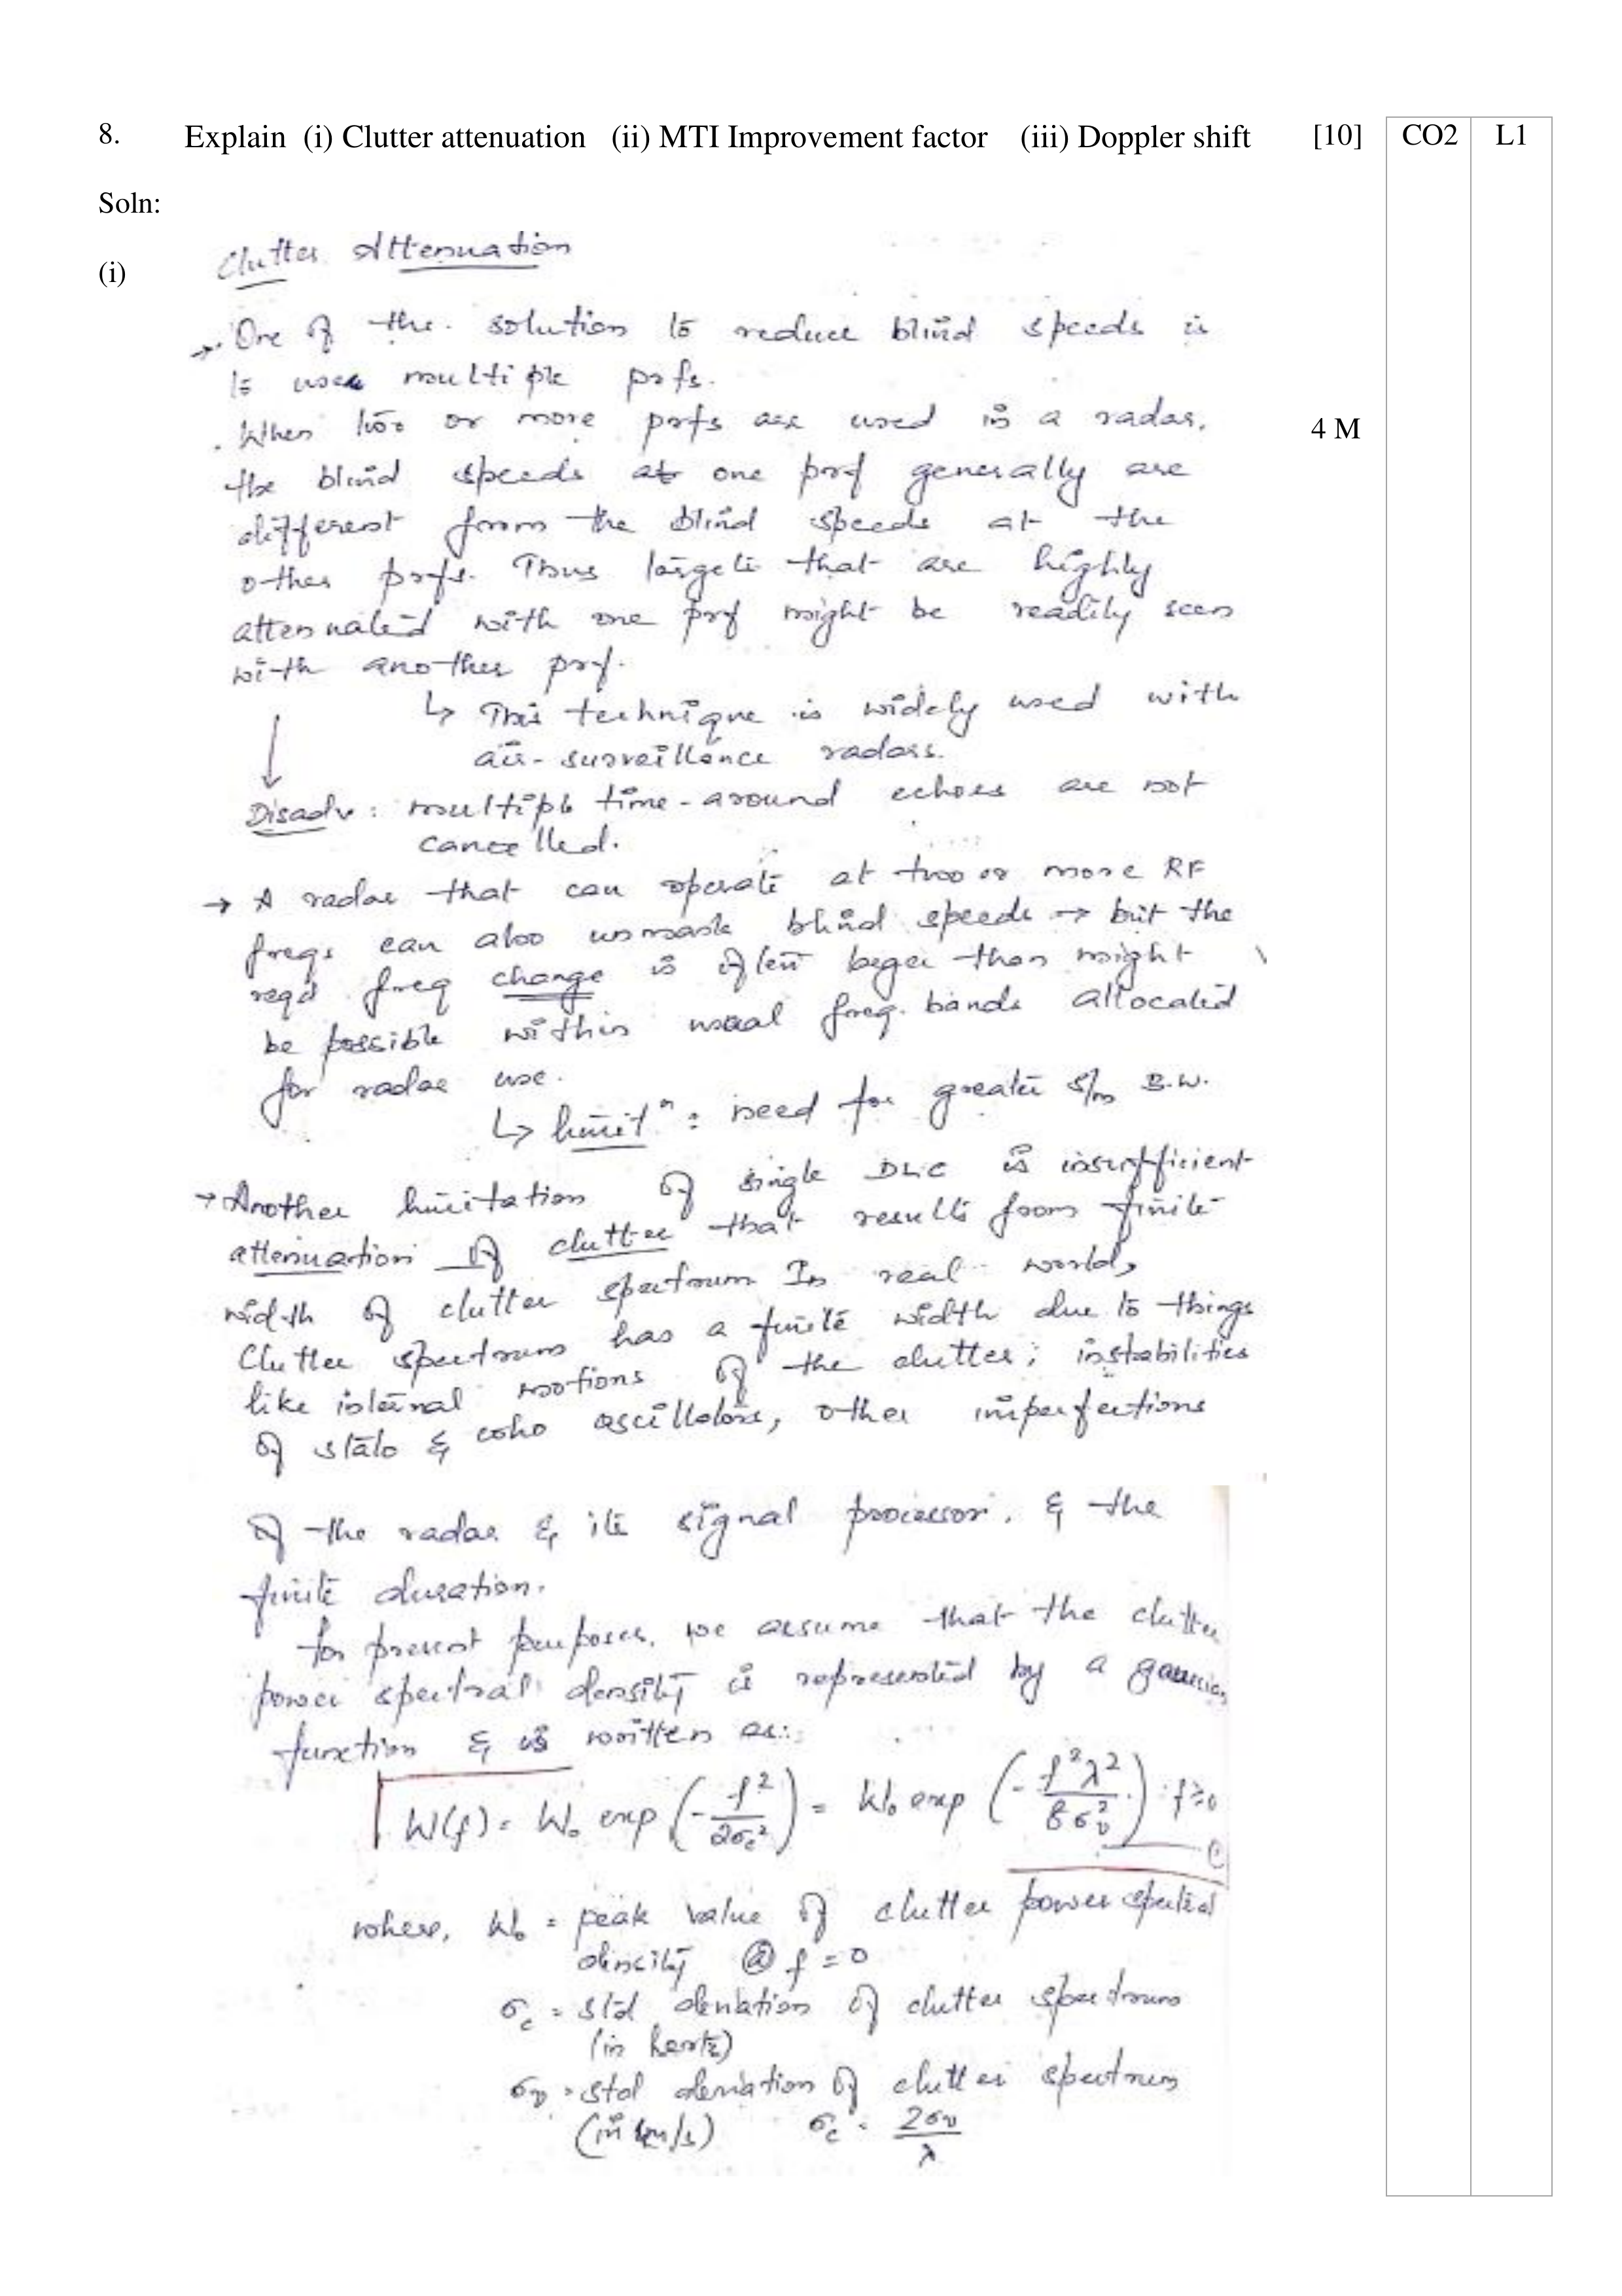 8. Explain (i) Clutter attenuation (ii) MTI Improvement factor (iii) Doppler shift [10] CO2 L1
Soln:
(i)
Clutter Attenuation
→. One of the solution to reduce blind speeds is
to use multiple prfs.
. When two or more prfs are used in a radar,
4 M
the blind speeds at one prf generally are
different from the blind speeds at the
other prfs. Thus targets that are highly
attenuated with one prf might be readily seen
with another prf.
↳ This technique is widely used with
air-surveillance radars.
↓
Disadv: multiple time-around echoes are not
cancelled.
→ A radar that can operate at two or more RF
freqs can also unmask blind speeds → but the
reqd freq change is often larger than might
be possible within usual freq. bands allocated
for radar use.
↳ limitⁿ: need for greater s/m B.W.
→ Another limitation of single DLC is insufficient
attenuation of clutter that results from finite
width of clutter spectrum In real world,
Clutter spectrum has a finite width due to things
like internal motions of the clutter; instabilities
of stalo & coho oscillators, other imperfections
of the radar & its signal processor, & the
finite duration.
for present purposes, we assume that the clutter
power spectral density is represented by a gaussian
function & is written as:
W(f) = W₀ exp (-f²/2σc²) = W₀ exp (-f²λ²/8σv²) f≥0
where, W₀ = peak value of clutter power spectral
density @ f = 0
σc = std deviation of clutter spectrum
(in hertz)
σv = std deviation of clutter spectrum
(in m/s) σc = 2σv/λ